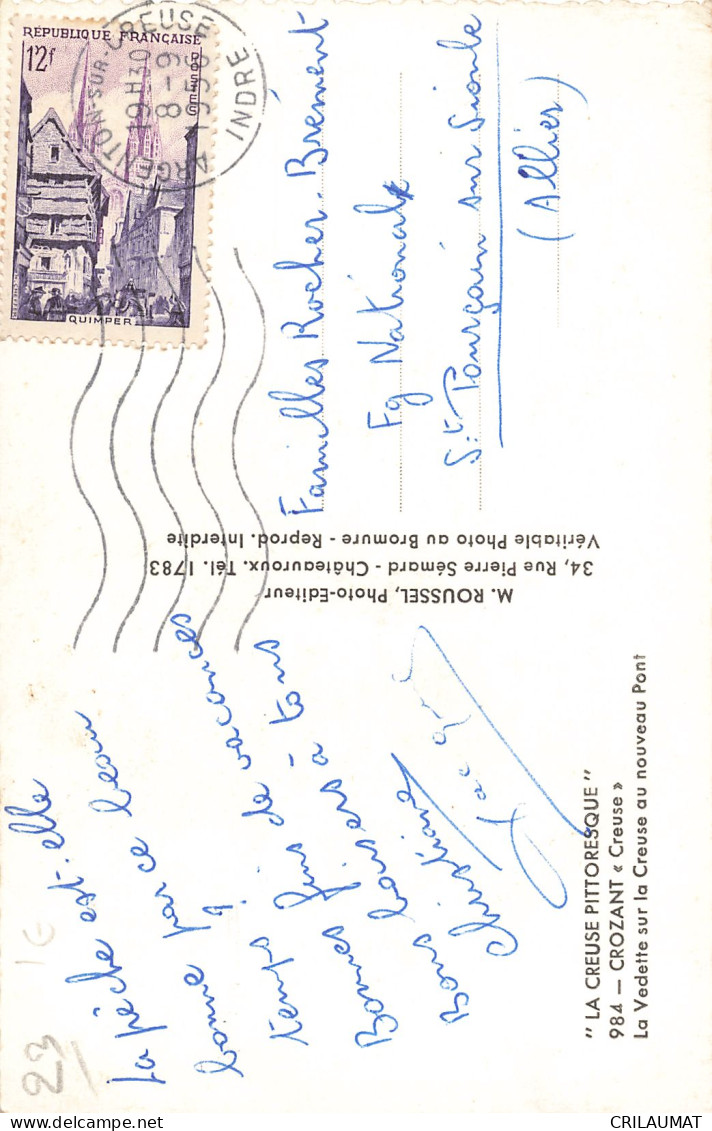 La pêche est-elle
bonne par ce beau
temps ?
Bonnes fins de vacances
Bons baisers à tous
Christiane
"LA CREUSE PITTORESQUE"
984 — CROZANT « Creuse »
La Vedette sur la Creuse au nouveau Pont
M. ROUSSEL, Photo-Editeur
34, Rue Pierre Sémard - Châteauroux. Tél. 1783
Véritable Photo au Bromure - Reprod. Interdite
RÉPUBLIQUE FRANÇAISE
12f
POSTES
QUIMPER
ARGENTON-SUR-CREUSE
16H30
8-9
1955
INDRE
Familles Rocher. Brément
Fg National
St Pourçain sur Sioule
(Allier)
23
1€
CRILAUMAT